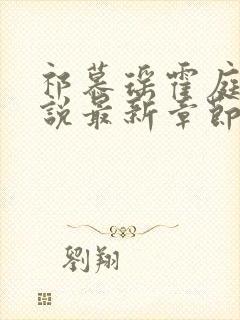 祁慕瑶霍庭
說最新章節
劉翔